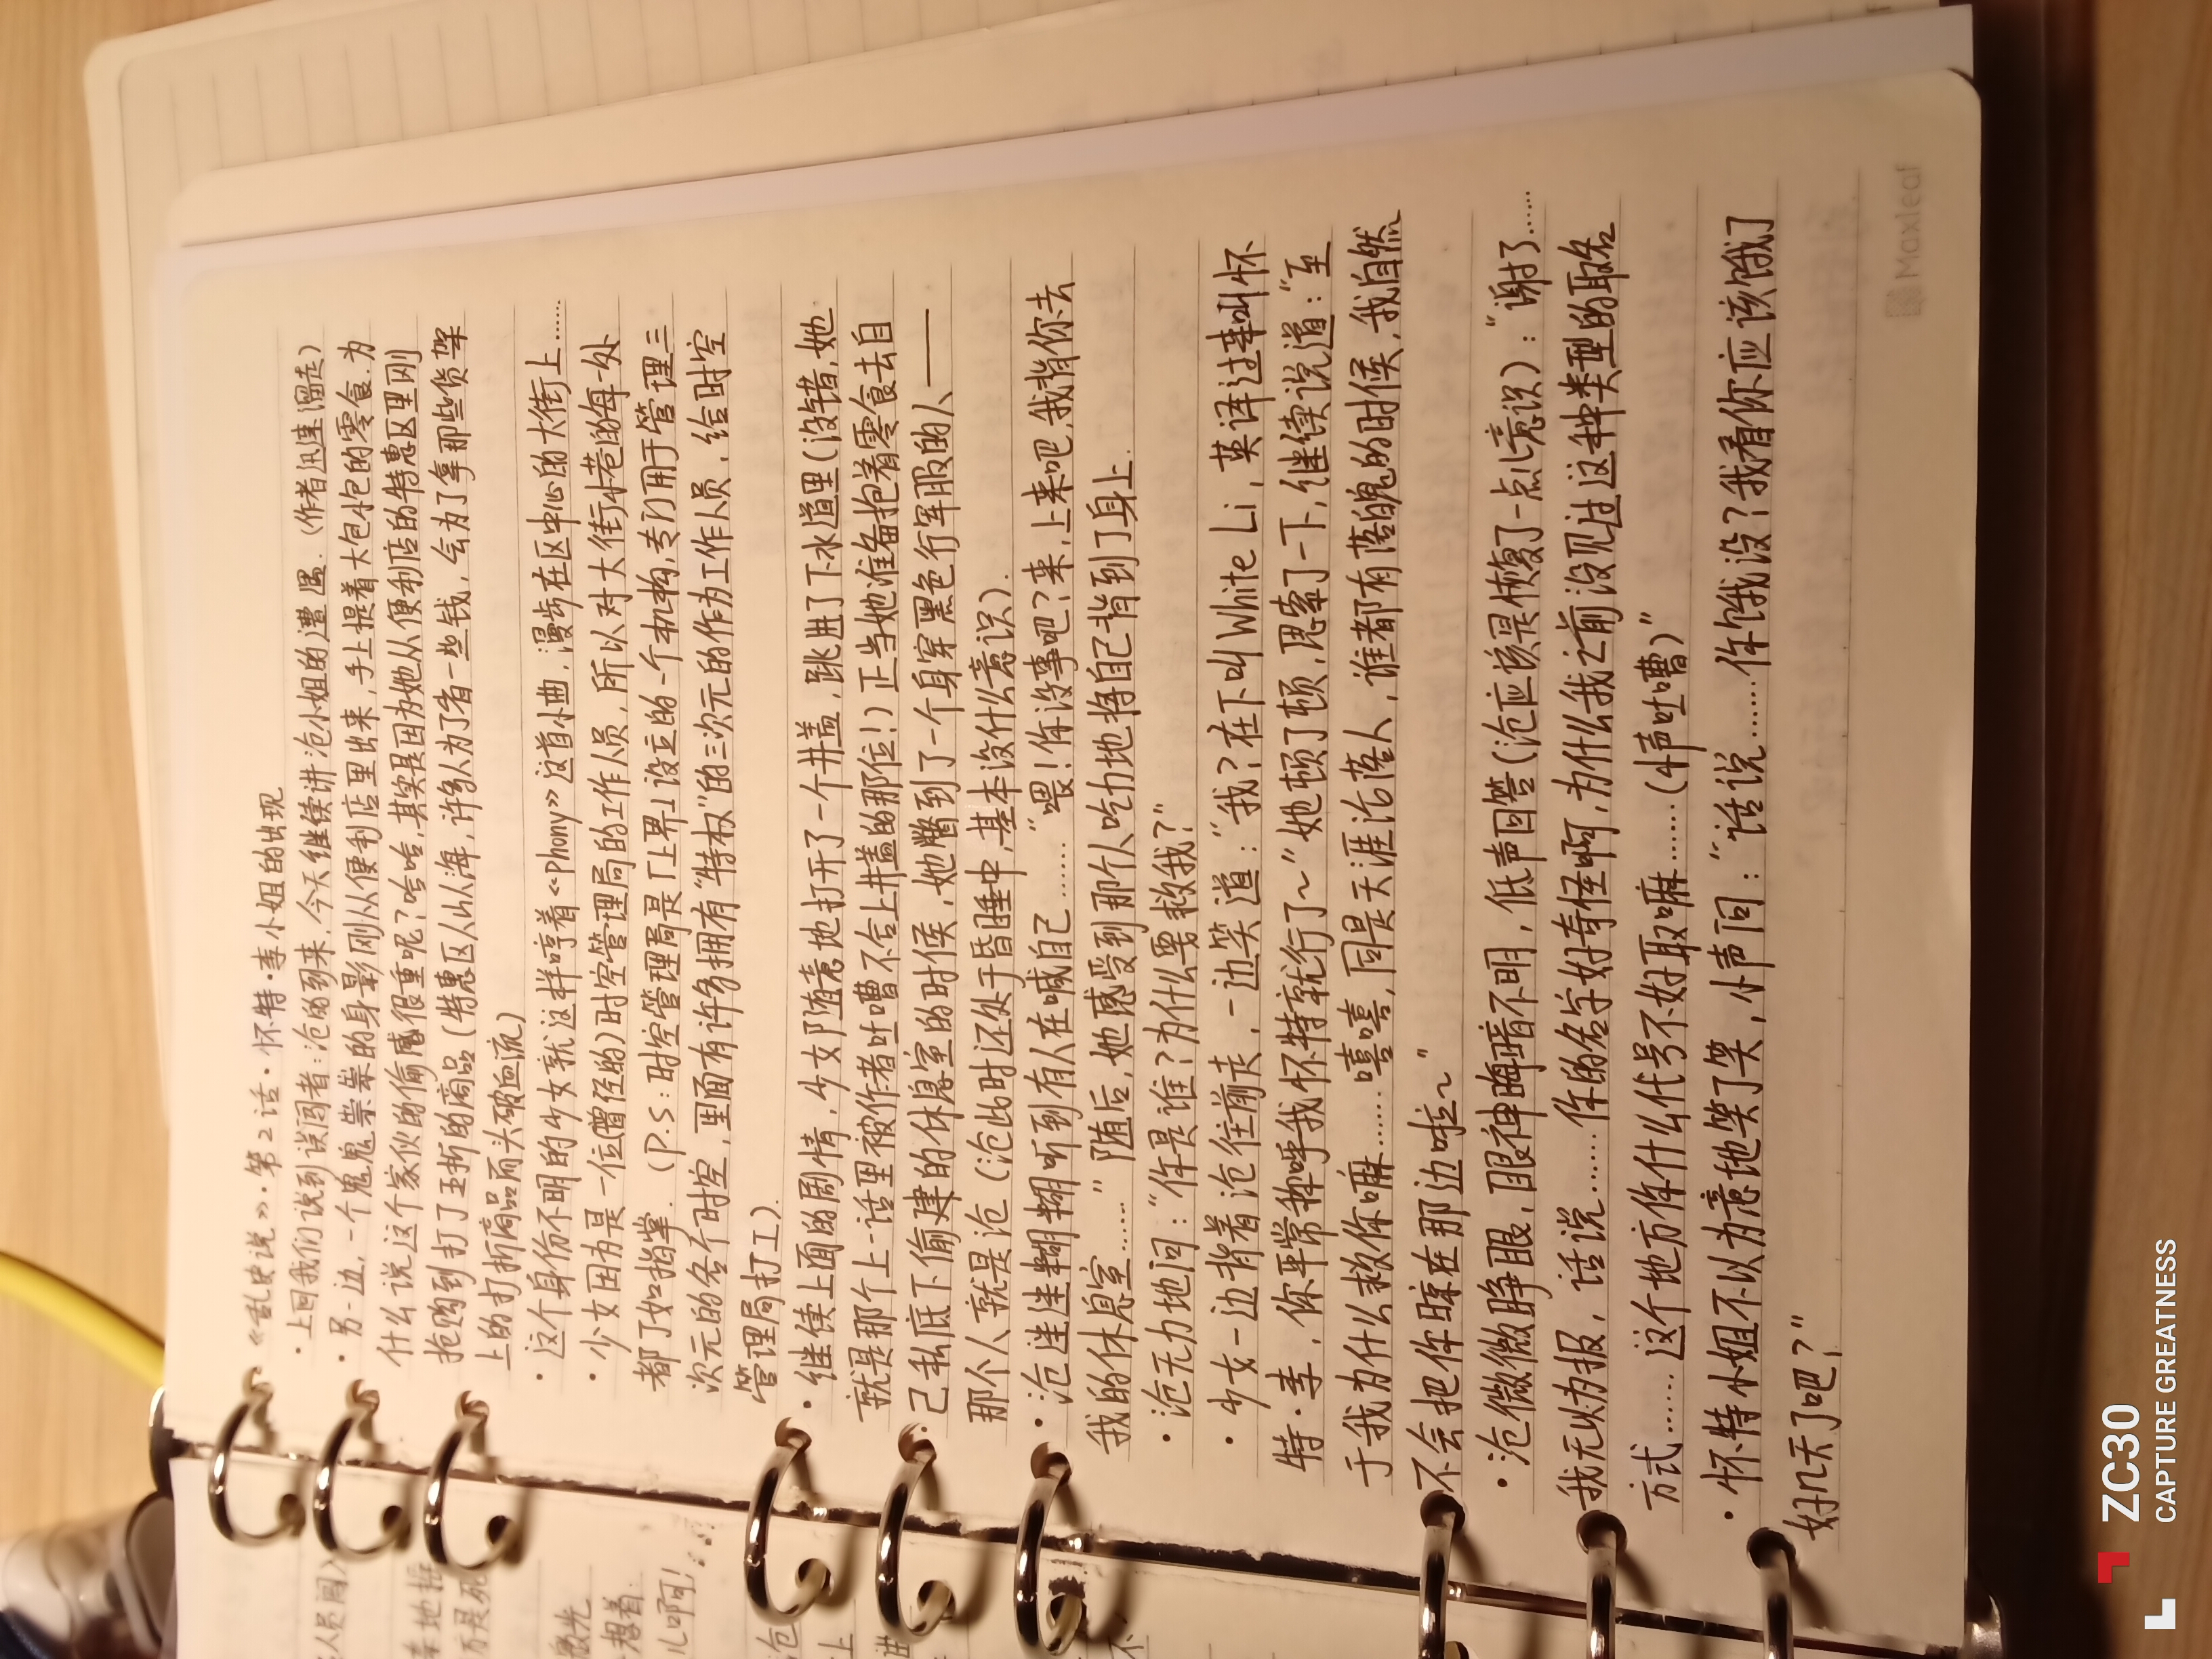 《乱史说》·第2话·怀特·李小姐的出现
·上回我们说到误闯者:沧的到来,今天继续讲沧小姐的遭遇.(作者迅速溜走)
·另一边,一个鬼鬼祟祟的身影刚从便利店里出来,手上提着大包小包的零食.为
什么说这个家伙的偷感很重呢?哈哈,其实是因为她从便利店的特惠区里刚
抢购到打了五折的商品(特惠区人山人海,许多人为了省一些钱,会为了拿那些货架
上的打折商品而头破血流)
·这个身份不明的少女就这样哼着《Phony》这首小曲,漫步在区中心的大街上……
·少女因为是一位曾经的)时空管理局的工作人员,所以对大街小巷的每一处
都了如指掌.(P.S:时空管理局是丁上界上设立的一个机构,专门用于管理三
次元的各个时空,里面有许多拥有“特权”的三次元的作为工作人员,给时空
管理局打工).
·继续上面的剧情,少女随意地打开了一个井盖,跳进了下水道里(没错,她
就是那个上一话里被作者吐嘈不合上井盖的那位!)正当她准备抱着零食去自
己私底下偷建的休息室的时候,她瞥到了一个身穿黑色行军服的人——
那个人就是沧(沧此时还处于昏睡中,基本没什么意识).
·沧迷迷糊糊听到有人在喊自己……“喂!你没事吧?来,上来吧,我背你去
我的休息室……”随后,她感受到那个人吃力地将自己背到了身上.
·沧无力地问:“你是谁?为什么要救我?”
·少女一边背着沧往前走,一边笑道:“我?在下叫White Li,英译过来叫怀
特·李,你平常称呼我怀特就行了~”她顿了顿,思索了一下,继续说道:“至
于我为什么救你嘛……嘻嘻,同是天涯沦落人,谁都有落魄的时候,我自然
不会把你晾在那边啦~”
·沧微微睁眼,眼神晦暗不明,低声回答(沧应该是恢复了一点儿意识):“谢了……
我无以为报,话说……你的名字好奇怪啊,为什么我之前没见过这种类型的取名
方式……这个地方你什么代号不好取嘛……(小声吐嘈)”
·怀特小姐不以为意地笑了笑,小声问:“话说……你饿没?我看你应该饿了
好几天了吧?”
Maxleaf
人员闯入
地框
而是死
想着.
儿啊!……
沧
上
进
不
ZC30
CAPTURE GREATNESS